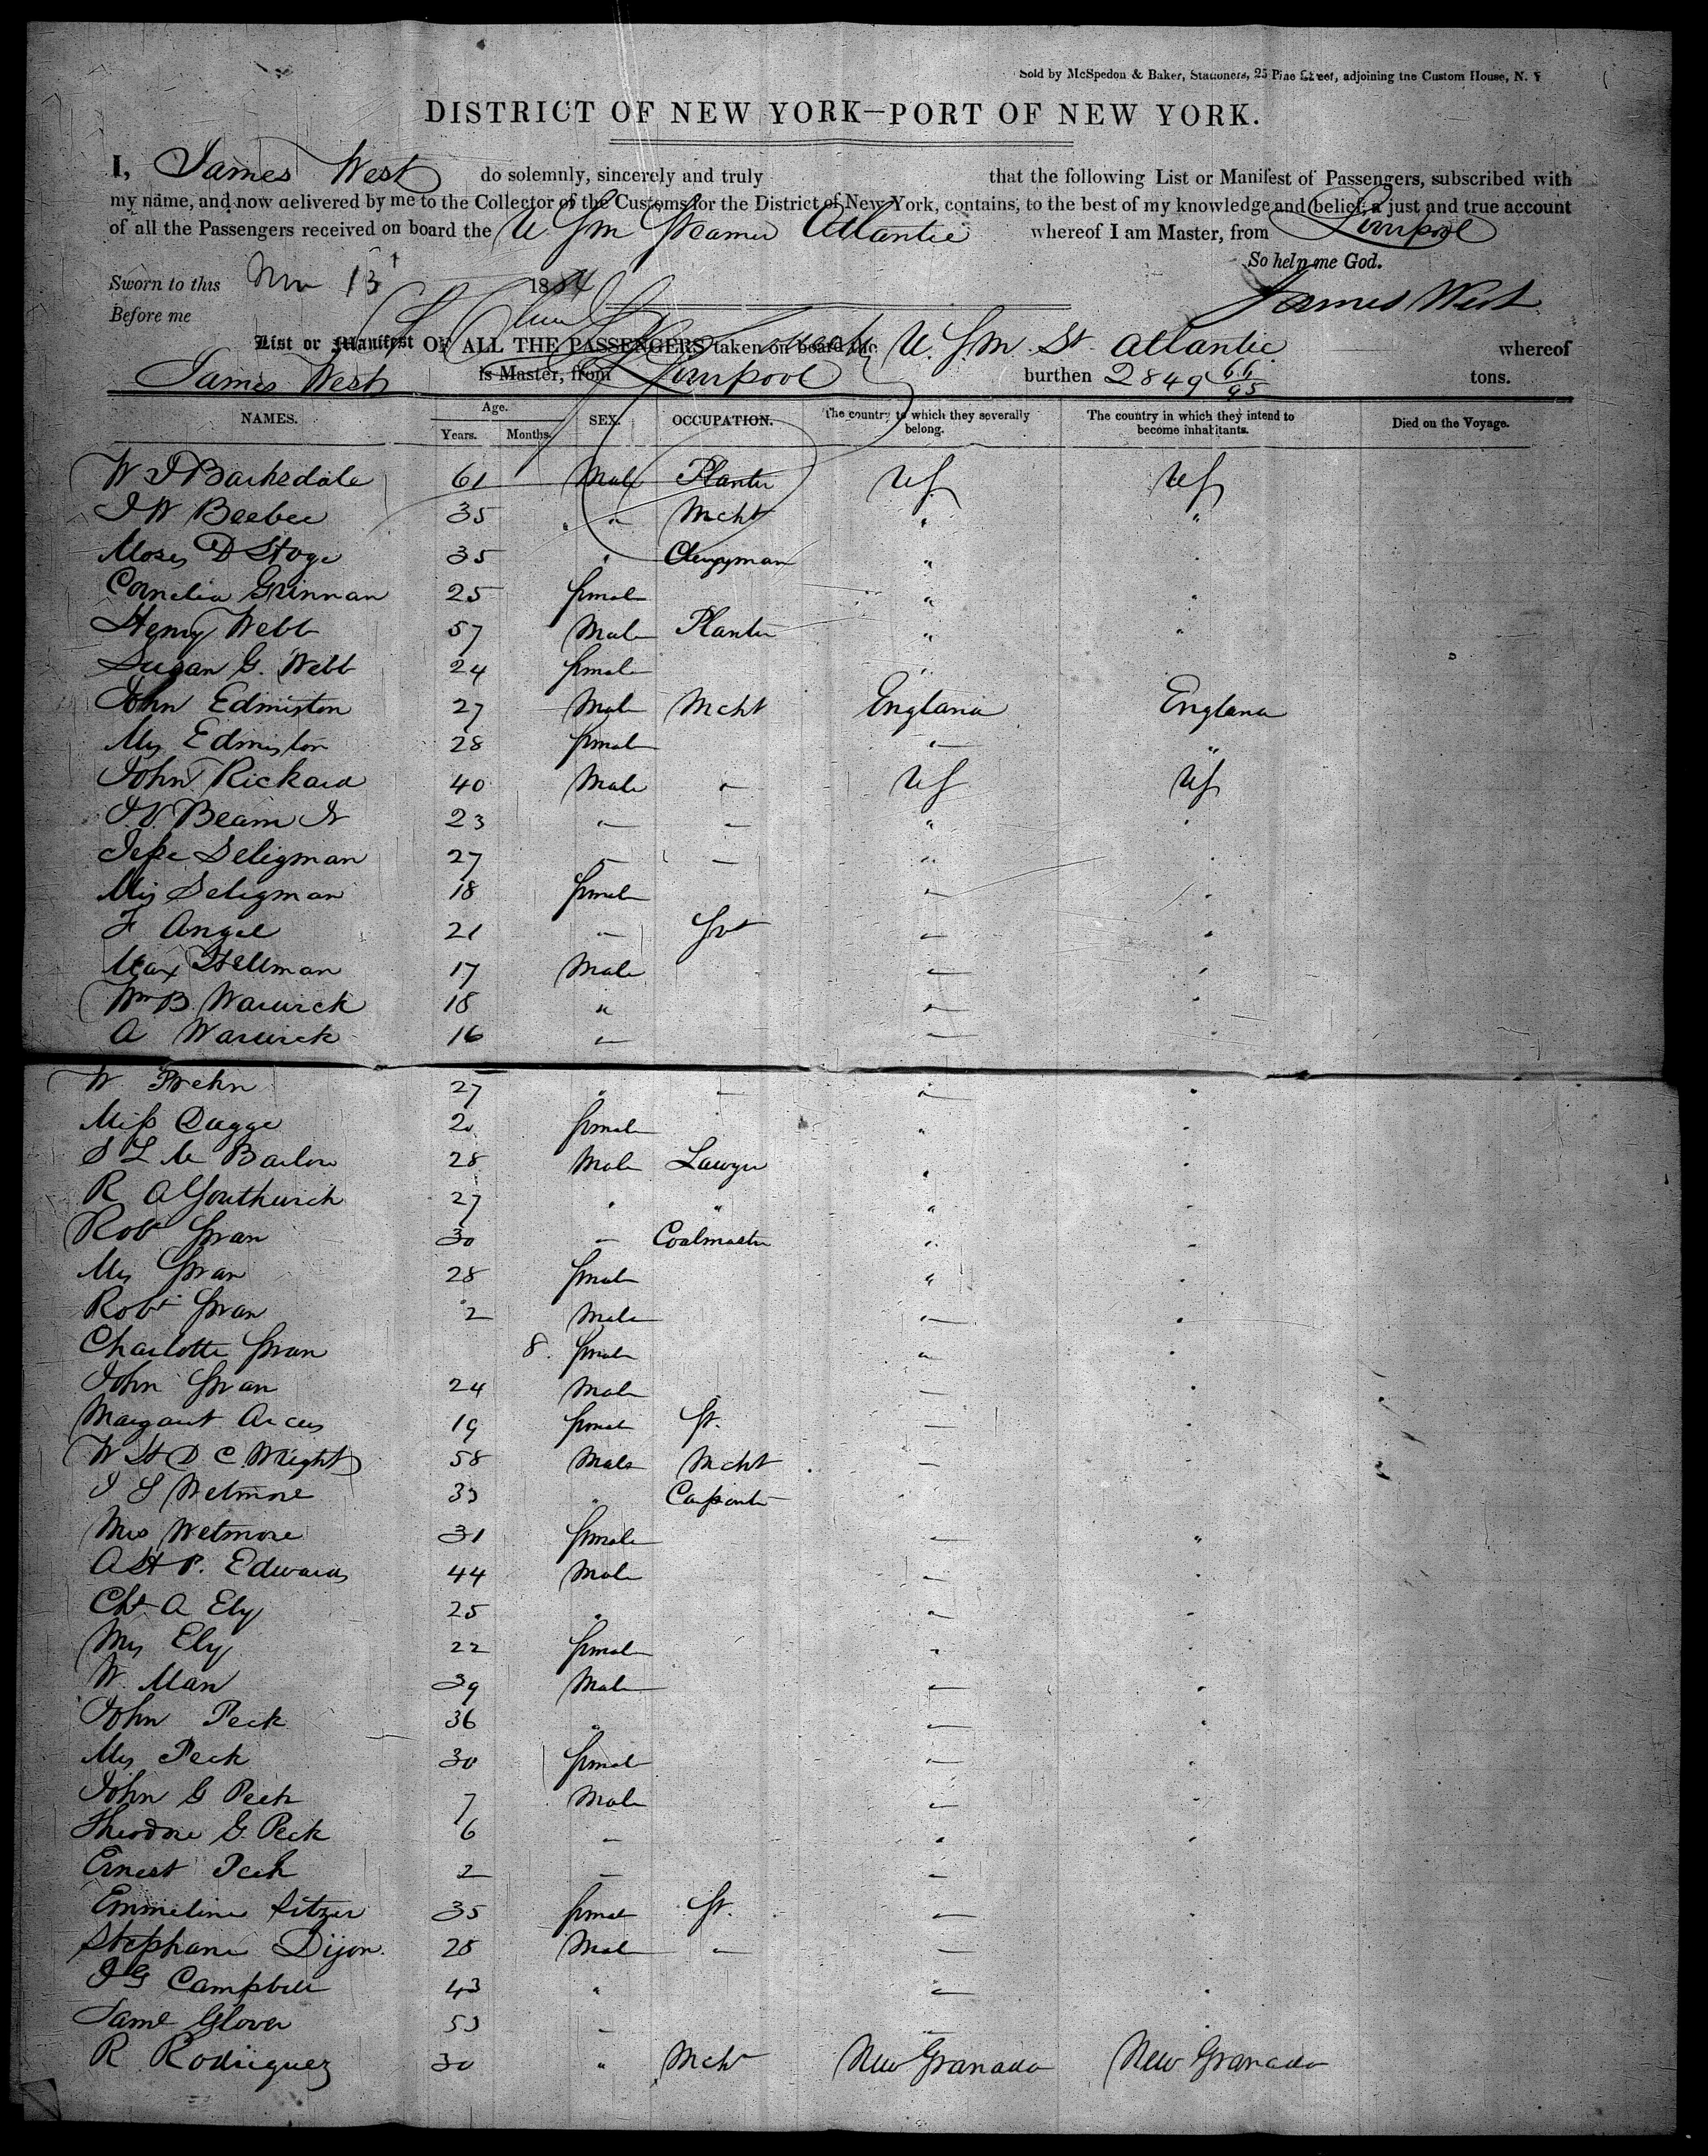 Sold by McSpedon & Baker, Stationers, 25 Pine Street, adjoining the Custom House, N. Y
DISTRICT OF NEW YORK—PORT OF NEW YORK.
I, James West do solemnly, sincerely and truly that the following List or Manifest of Passengers, subscribed with
my name, and now delivered by me to the Collector of the Customs for the District of New York, contains, to the best of my knowledge and belief, a just and true account
of all the Passengers received on board the U S M Steamer Atlantic whereof I am Master, from Liverpool
So help me God.
Sworn to this Nov 13 1854
James West
Before me
List or Manifest OF ALL THE PASSENGERS taken on board the U. S. M. St Atlantic whereof
James West is Master, from Liverpool burthen 2849 66/95 tons.
NAMES. Age. Years. Months. SEX. OCCUPATION. The country to which they severally belong. The country in which they intend to become inhabitants. Died on the Voyage.
W J Barksdale 61 Male Planter US US
J W Beebee 35 " Mcht " "
Moses D Hoge 35 " Clergyman " "
Cornelia Grinnan 25 female " "
Henry Webb 57 Male Planter " "
Susan G. Webb 24 female "
John Edmiston 27 Male Mcht England England
Mrs Edmiston 28 female " "
John Rickard 40 Male " US US
J. V. Beam Jr 23 " " " "
Jesse Seligman 27 " " " "
Mrs Seligman 18 female " "
F Angel 21 " Svt " "
Max Hellman 17 Male " "
Wm B. Warwick 18 " " "
A Warwick 16 " " "
W Prehn 27 " " " "
Miss Dagge 20 female " "
S L M Barlow 28 Male Lawyer " "
R A 27 " " " "
Robt Swan 30 " Coalmaster " "
Mrs Swan 28 female " "
Robt Swan 2 Male " "
Charlotte Swan 8 female " "
John Swan 24 Male " "
Margaret 19 female St. " "
W H D C Wright 58 Male Mcht " "
J S Wetmore 33 " Carpenter " "
Mrs Wetmore 31 female " "
A H P. Edwards 44 Male " "
Chs A Ely 25 " " "
Mrs Ely 22 female " "
W. Man 39 Male " "
John Peck 36 " " "
Mrs Peck 30 female " "
John G Peck 7 Male " "
Theodore G. Peck 6 " " "
Ernest Peck 2 " "
Emmeline Sitzer 35 female St. " "
Stephane Dijon. 28 Male " "
J G Campbell 43 " " "
Saml Glover 53 " " "
R Rodriguez 30 " Mcht New Granada New Granada